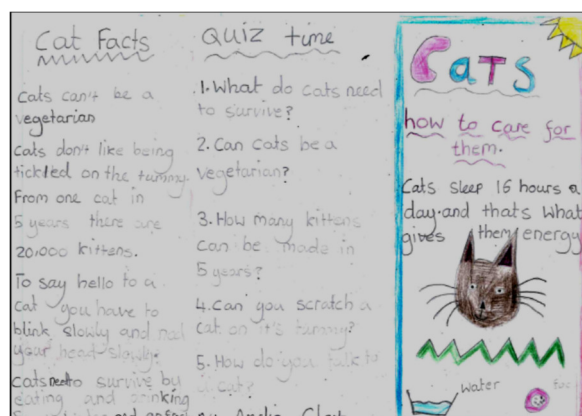 Cat Facts
Cats can't be a
vegetarian
Cats don't like being
tickled on the tummy.
From one cat in
5 years there are
20,000 kittens.
To say hello to a
cat you have to
blink slowly and nod
your head slowly.
Cats need to survive by
eating and drinking
Quiz time
1. What do cats need
to survive?
2. Can cats be a
vegetarian?
3. How many kittens
can be made in
5 years?
4. Can you scratch a
cat on it's tummy?
5. How do you talk to
a cat?
Cats
how to care for
them.
Cats sleep 16 hours a
day and thats what
gives them energy
water